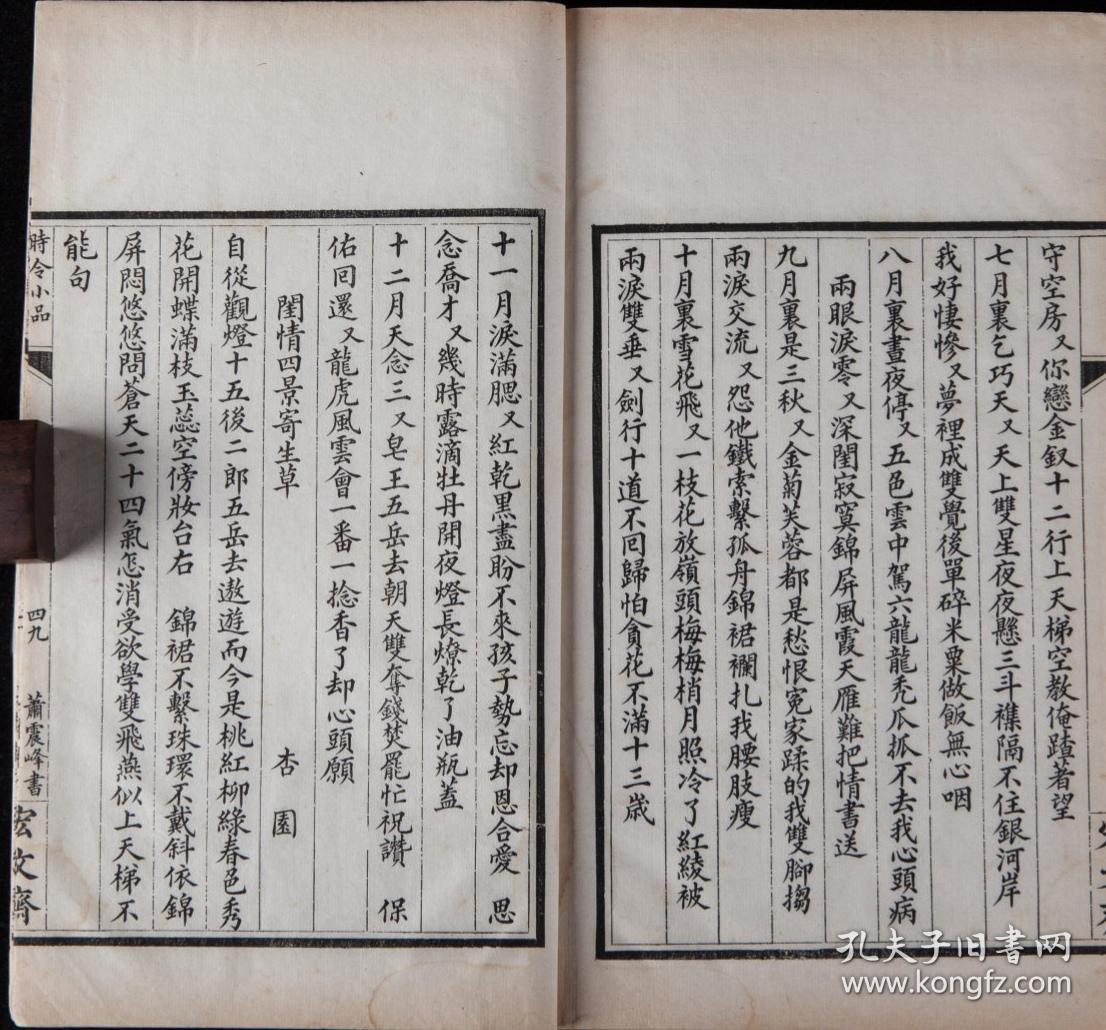 守空房又你戀金釵十二行上天梯空教俺蹅著望
七月裏乞巧天又天上雙星夜夜懸三斗襍隔不住銀河岸
我好悽慘又夢裡成雙覺後單碎米粟做飯無心咽
八月裏晝夜停又五色雲中駕六龍龍禿瓜抓不去我心頭病
兩眼淚零又深閨寂寞錦屏風霞天雁難把情書送
九月裏是三秋又金菊芙蓉都是愁恨冤家蹂的我雙腳搊
兩淚交流又怨他鐵索繫孤舟錦裙襴扎我腰肢瘦
十月裏雪花飛又一枝花放嶺頭梅梅梢月照冷了紅綾被
兩淚雙垂又劍行十道不回歸怕貪花不滿十三歲
十一月淚滿腮又紅乾黑盡盼不來孩子勢忘却恩合愛 思
念喬才又幾時露滴牡丹開夜燈長燎乾了油瓶蓋
十二月天念三又皂王五岳去朝天雙奪錢焚罷忙祝讚 保
佑回還又龍虎風雲會一番一捻香了却心頭願
閨情四景寄生草 杏園
自從觀燈十五後二郎五岳去遨遊而今是桃紅柳綠春色秀
花開蝶滿枝玉蕊空傍妝台右 錦裙不繫珠環不戴斜依錦
屏悶悠悠問蒼天二十四氣怎消受欲學雙飛燕似上天梯不
能句
時令小品
四九
蕭震峰書
宏文齋
孔夫子旧书网
www.kongfz.com